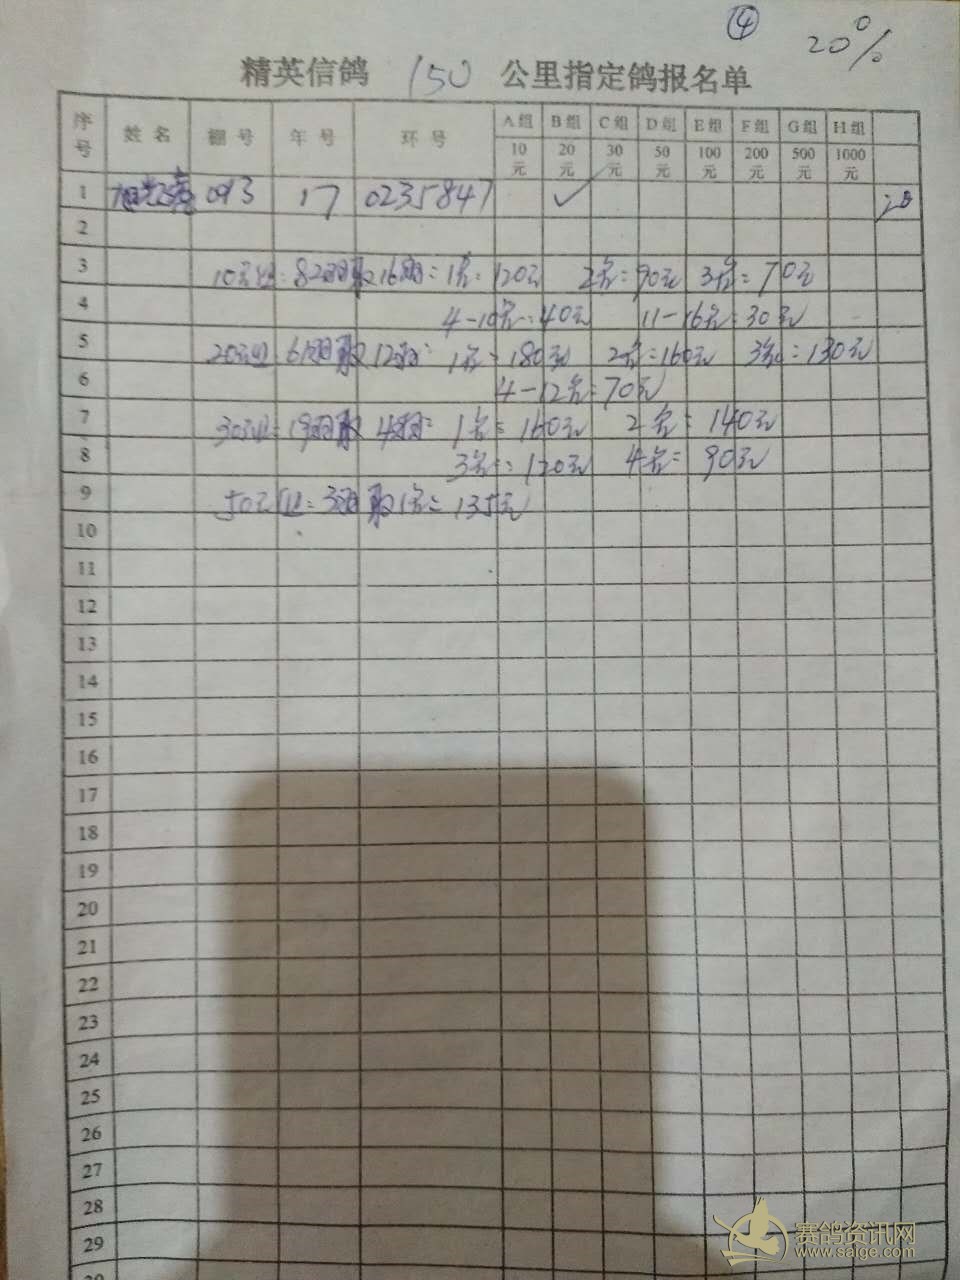 ④ 20%
精英信鸽 150 公里指定鸽报名单
序号 姓名 棚号 年号 环号 A组 B组 C组 D组 E组 F组 G组 H组
10元 20元 30元 50元 100元 200元 500元 1000元
1 093 17 0235847 ✓ 20
2
3 10元组:82羽取16羽:1名:120元 2名=90元 3名=70元
4 4-10名:40元 11-16名:30元
5 20元组 61羽取12羽:1名=180元 2名=160元 3名=130元
6 4-12名=70元
7 30元组:19羽取4羽:1名=160元 2名=140元
8 3名:120元 4名=90元
9 50元组:3羽取1名=135元
10
11
12
13
14
15
16
17
18
19
20
21
22
23
24
25
26
27
28
29
30
赛鸽资讯网
www.saige.com